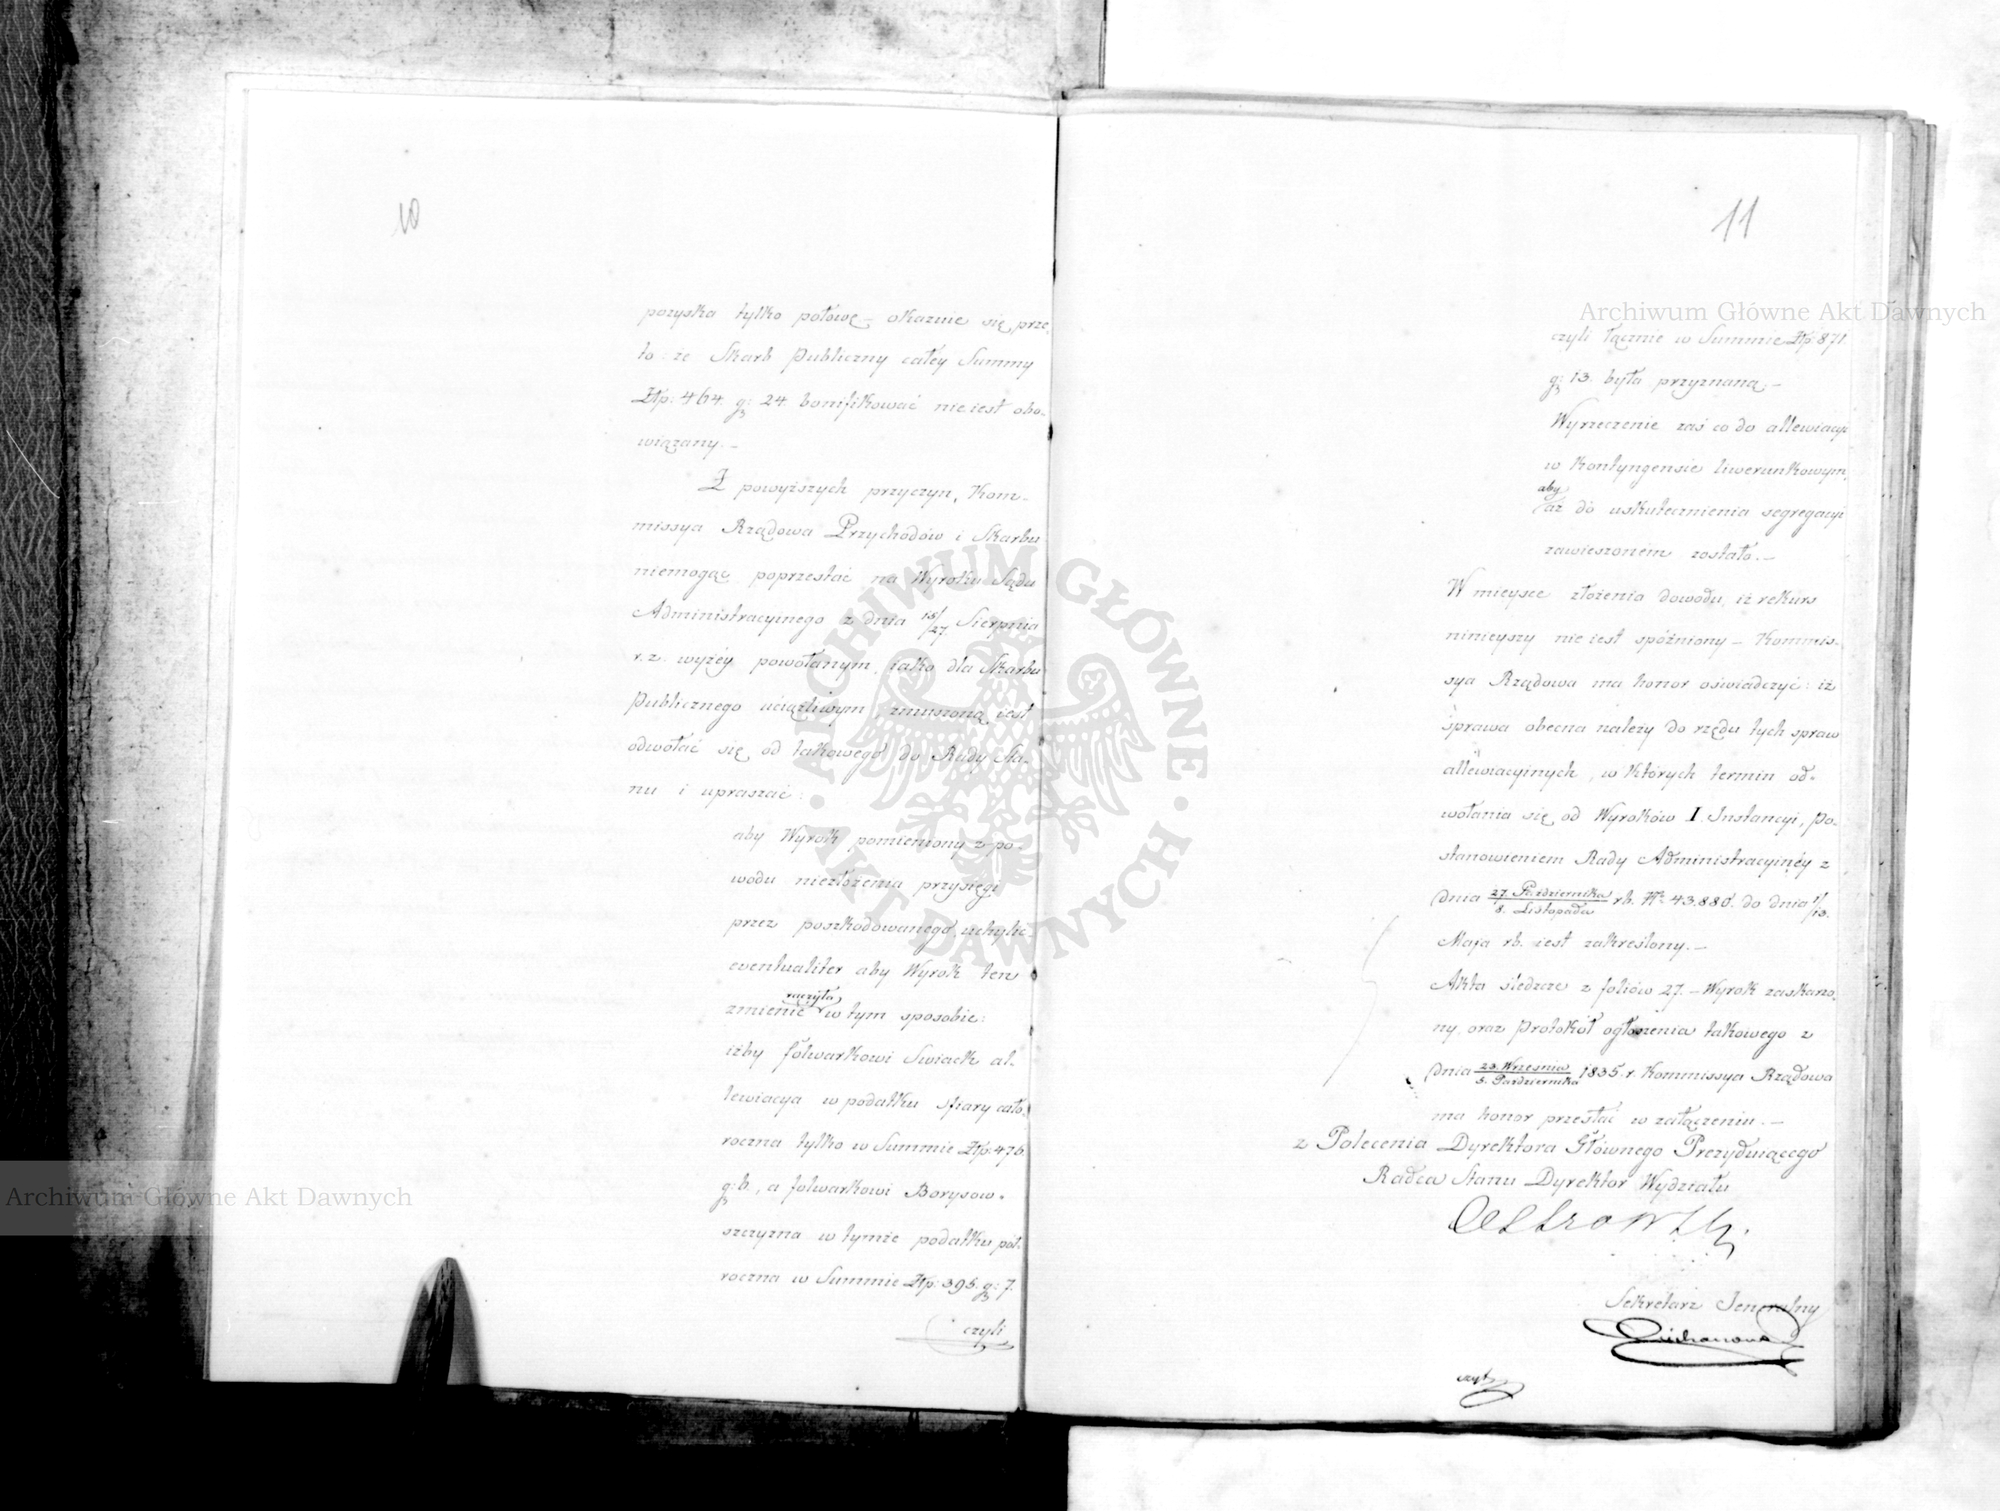 10
pozyska tylko połowę – okazuie się prze,
to że Skarb Publiczny całéy Summy
Złp: 464. gr: 24. bonifikować nie iest obo-
wiązany. –
Z powyższych przyczyn, Kom-
missya Rządowa Przychodów i Skarbu
niemogąc poprzestać na Wyroku Sądu
Administracyinego z dnia 15/27 Sierpnia
r. z. wyżéy powołanym, iako dla Skarbu
Publicznego uciążliwym, zmuszoną iest
odwołać się od takowego do Rady Sta-
nu i upraszać:
aby Wyrok pomieniony z po-
wodu niezłożenia przysięgi
przez poszkodowanego, uchylić
eventualiter aby Wyrok ten
raczyła
zmienić w tym sposobie:
iżby folwarkowi Swiack al-
lewiacya w podatku ofiary cało-
roczna tylko w Summie Złp: 476
gr: 6., a folwarkowi Borysow-
szczyzna w tymże podatku pół-
roczna w Summie Złp: 395. gr: 7.
czyli
11
czyli łącznie w Summie Złp: 871.
gr: 13. była przyznaną. –
Wyrzeczenie zaś co do allewiacyi
w kontyngensie liwerunkowym,
aby
aż do uskutecznienia segregacyi
zawieszoném zostało. –
W mieysce złożenia dowodu, iż rekurs
ninieyszy nie iest spóźniony – Kommis-
sya Rządowa ma honor oświadczyć: iż
sprawa obecna należy do rzędu tych spraw
allewiacyinych, w których termin od-
wołania się od Wyroków I. Instancyi, Po-
stanowieniem Rady Administracyinéy z
dnia 27. Października / 8. Listopada rb. Nr. 43.880. do dnia 1/13.
Maja rb. iest zakreślony. –
Akta śledcze z foliów 27. – Wyrok zaskarżo,
ny, oraz Protokół ogłoszenia takowego z
dnia 23. Września / 5. Października 1835. r. Kommissya Rządowa
ma honor przesłać w załączeniu. –
z Polecenia Dyrektora Głównego Prezyduiącego
Radca Stanu Dyrektor Wydziału
Sekretarz Jeneralny
Archiwum Główne Akt Dawnych
Archiwum Główne Akt Dawnych
ARCHIWUM GŁÓWNE · AKT DAWNYCH ·